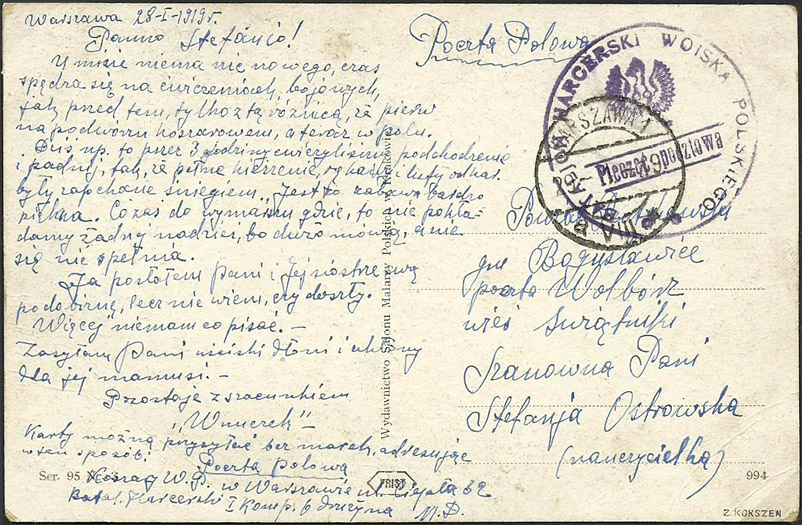 Warszawa 28-I-1919 r.
Panno Stefanio!
U mnie niema nic nowego, czas
spędza się na ćwiczeniach, bojowych,
tak przed tem, tylko z tą różnicą, że pierw
na podwórzu koszarowem, a teraz w polu.
Dziś np. to przez 3 godziny ćwiczyliśmy podchodzenie
i padnij, tak, że pełne kieszenie, rękawy i buty
były zapchane śniegiem. Jest to zabawa bardzo
piękna. Co zaś do wymarszu gdzie, to nie pokła-
damy żadnej nadziei, bo dużo mówią, a nic
się nie spełnia.
Ja posłałem Pani i Jej siostrze swą
podobiznę, lecz nie wiem, czy doszły.
Więcej niemam co pisać. —
Zasyłam Pani uściski dłoni i ukłony
dla jej mamusi. —
Pozostaję z szacunkiem
"
Karty można przysyłać bez marek, adresując
w ten sposób:
Poczta Polowa
W.P. w Warszawie ul. Ciepła 32
Batal. Harcerski I Komp. 6 drużyna M.P.
Ser. 95 № 3
Wydawnictwo Salonu Malarzy Polskich w Krakowie
Poczta Polowa
HARCERSKI WOJSKA POLSKIEGO
WARSZAWA 1
VIII
gm Bogusławice
poczta Wolbórz
wieś Świątniki
Szanowna Pani
Stefanja Ostrowska
(nauczycielka)
994
Z. KOKSZEN